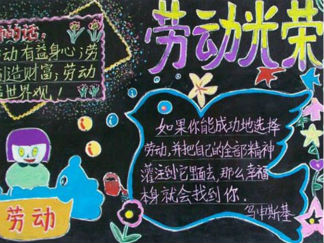 劳动光荣
的话：
动有益身心；劳
创造财富；劳动
世界观！
如果你能成功地选择
劳动，并把自己的全部精神
灌注到它里面去，那么幸福
本身就会找到你．
乌申斯基
劳动